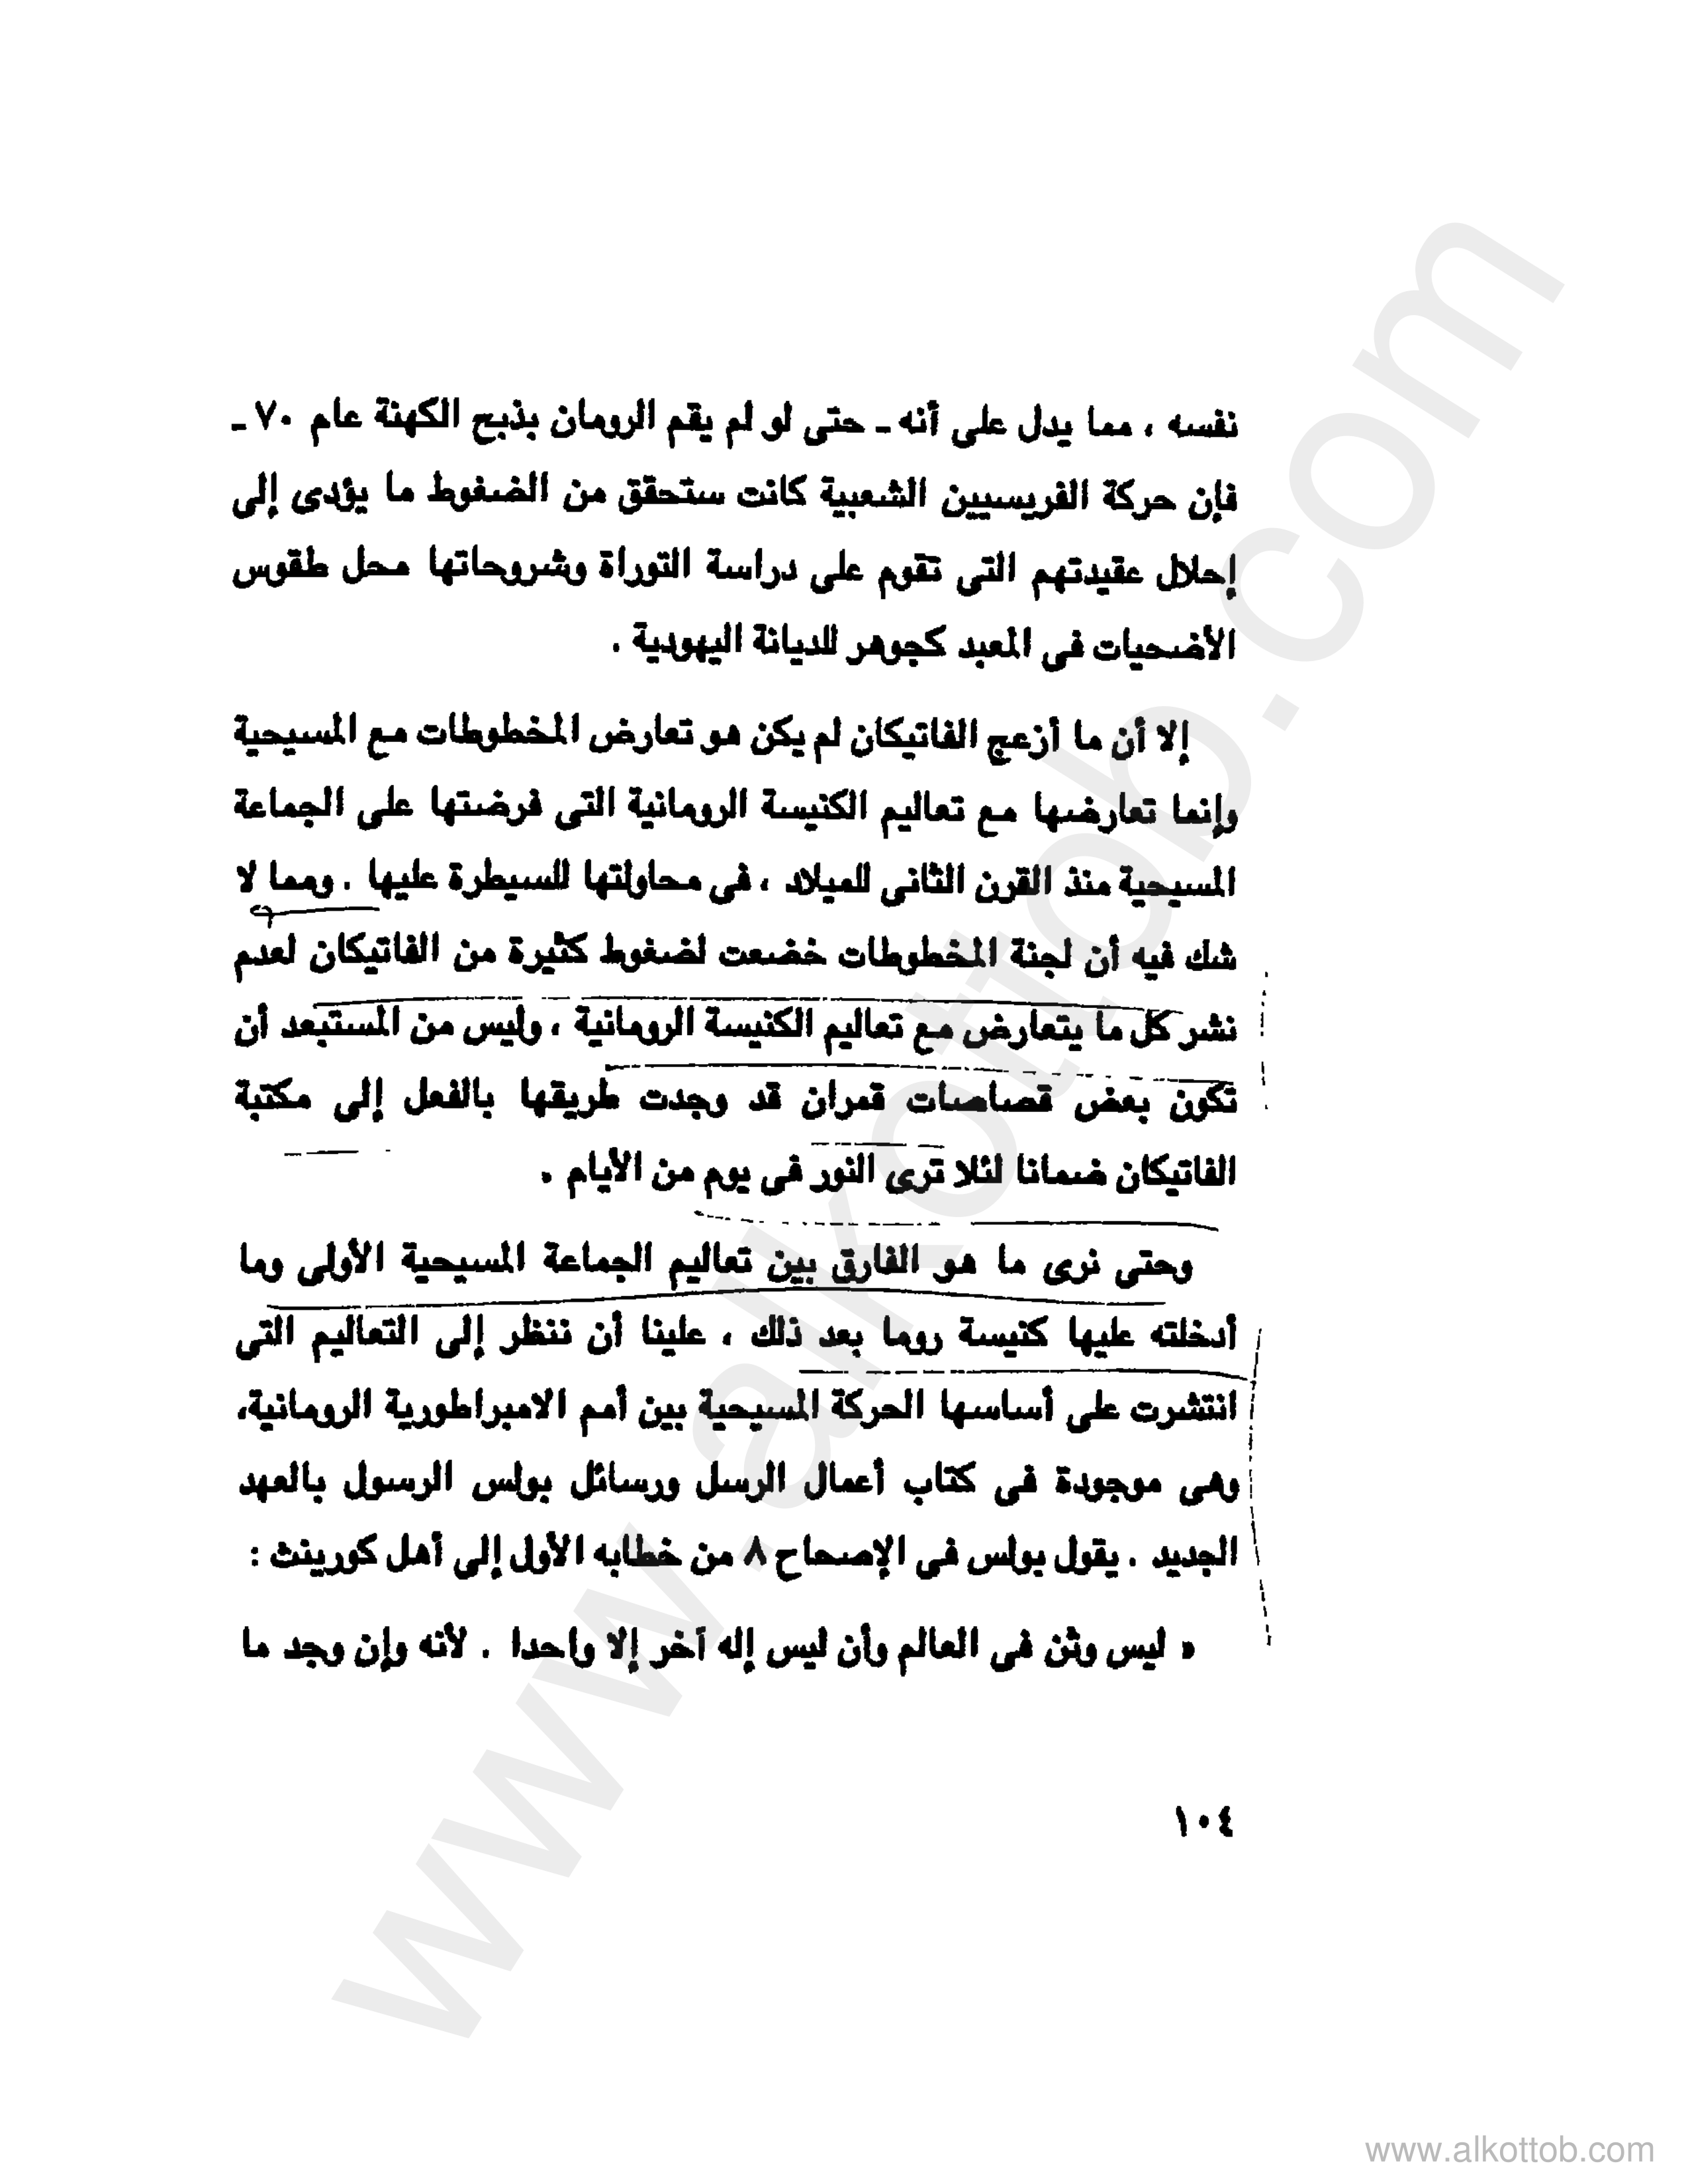 نفسه ، مما يدل على أنه ـ حتى لو لم يقم الرومان بذبح الكهنة عام ٧٠ ـ
فإن حركة الفريسيين الشعبية كانت ستحقق من الضغوط ما يؤدى إلى
إحلال عقيدتهم التى تقوم على دراسة التوراة وشروحاتها محل طقوس
الأضحيات فى المعبد كجوهر للديانة اليهودية .
إلا أن ما أزعج الفاتيكان لم يكن هو تعارض المخطوطات مع المسيحية
وإنما تعارضها مع تعاليم الكنيسة الرومانية التى فرضتها على الجماعة
المسيحية منذ القرن الثانى للميلاد ، فى محاولتها للسيطرة عليها . ومما لا
شك فيه أن لجنة المخطوطات خضعت لضغوط كثيرة من الفاتيكان لعدم
نشر كل ما يتعارض مع تعاليم الكنيسة الرومانية ، وليس من المستبعد أن
تكون بعض قصاصات قمران قد وجدت طريقها بالفعل إلى مكتبة
الفاتيكان ضمانا لئلا ترى النور فى يوم من الأيام .
وحتى نرى ما هو الفارق بين تعاليم الجماعة المسيحية الأولى وما
أدخلته عليها كنيسة روما بعد ذلك ، علينا أن ننظر إلى التعاليم التى
انتشرت على أساسها الحركة المسيحية بين أمم الامبراطورية الرومانية،
وهى موجودة فى كتاب أعمال الرسل ورسائل بولس الرسول بالعهد
الجديد . يقول بولس فى الإصحاح ٨ من خطابه الأول إلى أهل كورينث :
« ليس وثن فى العالم وأن ليس إله آخر إلا واحدا . لأنه وإن وجد ما
١٠٤
www.alkottob.com
www.alkottob.com